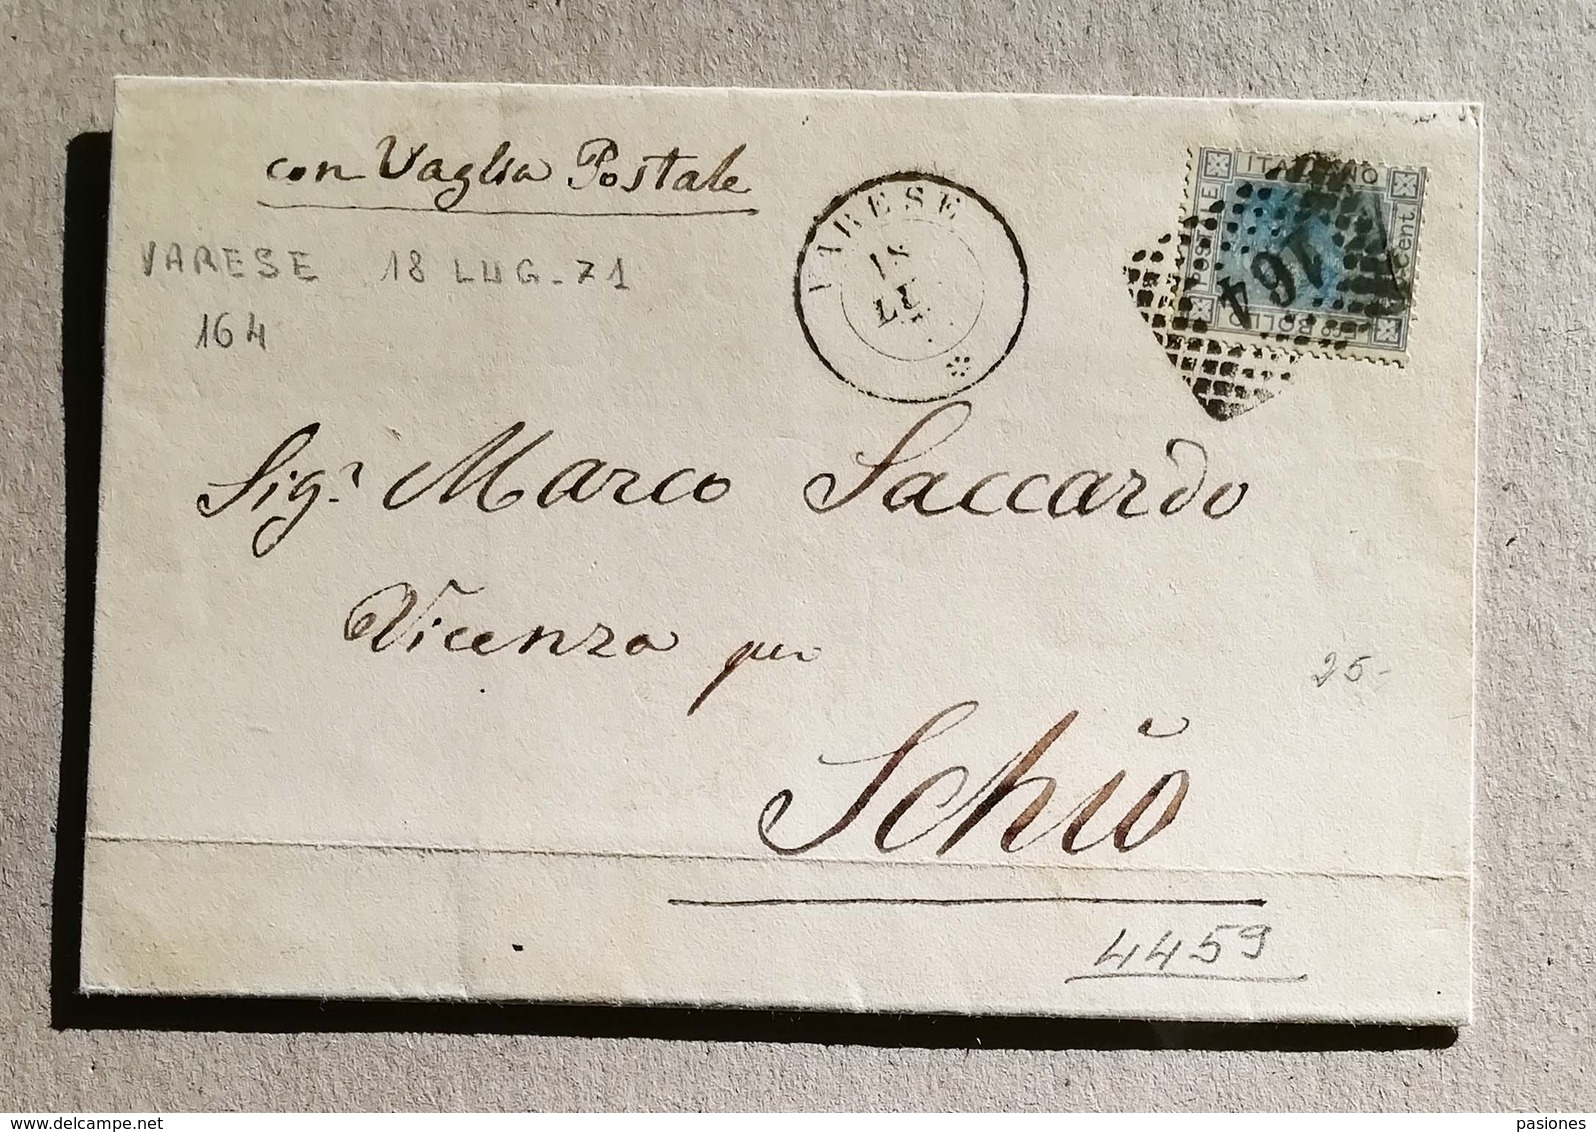 con Vaglia Postale
VARESE 18 LUG-71
164
VARESE
18
LU
ITALIANO
POSTALE
cent.
BOLLO
164
Sigr Marco Saccardo
Vicenza per
Schio
25-
4459
www.delcampe.net
pasiones